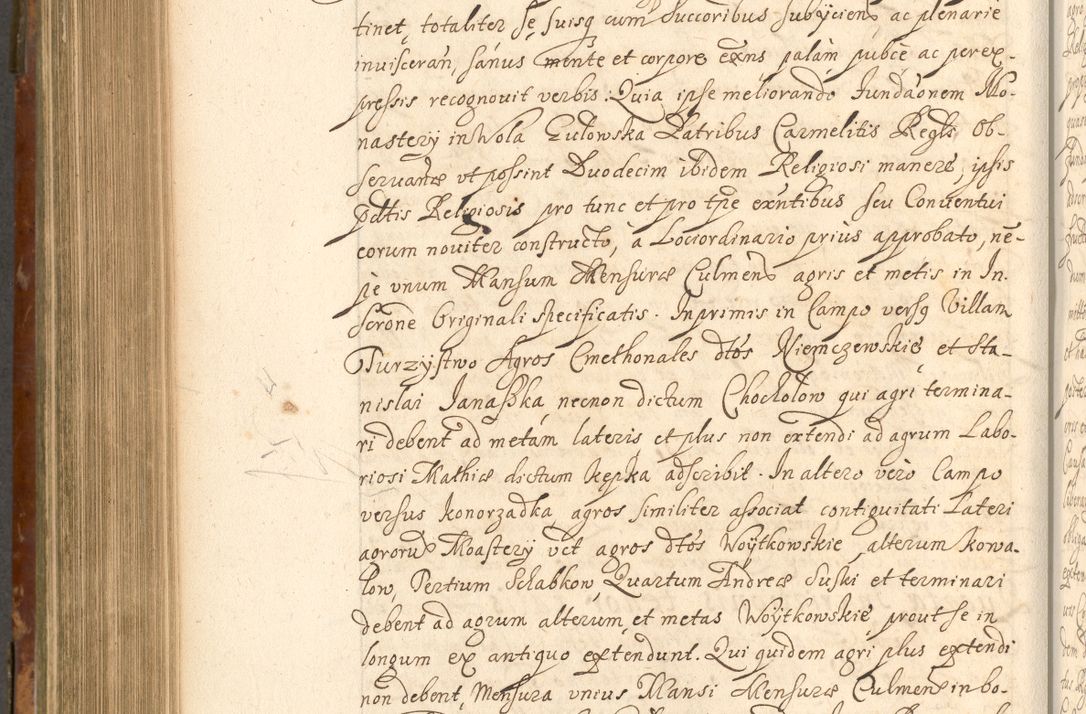 tinet, totaliter se, suisq cum succoribus subÿciens ac plenarie
inuisceran, sanus mente et corpore exns palam pubce ac perex-
pressis recognouit verbis: Quia ipse meliorando fundaonem Mo-
nasterÿ in Wola Gulowska Patribus Carmelitis Regls Ob-
seruanæ vt possint Duodecim ibidem Religiosi manere, ipsis
pdttis Religiosis pro tunc et pro tpe exntibus seu Conuentui
eorum nouiter constructo, a Lociordinario prius approbato, ne-
pe vnum Mansum Mensuræ Culmens agris et metis in In-
serone Originali specificatis. Inprimis in Campo versq Villam
Turzÿstwo Agros Cmethonales dtos Niemczewskie et Sta-
nislai Janaszka, necnon dictum Chochołow qui agri termina-
ri debent ad metam lateris et plus non extendi ad agrum Labo-
riosi Mathiæ dictum Kępka adscribit. In altero vero Campo
versus Konorzadka agros similiter associat contiguitati Lateri
agroru Moasterÿ vct agros dtos Woÿtkowskie, alterum Kowa-
low, Tertium Schabkow, Quartum Andreæ Suski et terminari
debent ad agrum alterum, et metas Woÿtkowskie prout se in
longum ex antiquo extendunt. Qui quidem agri plus extendi
non debent, Mensura vnius Mansi Mensuræ Culmens in bo-